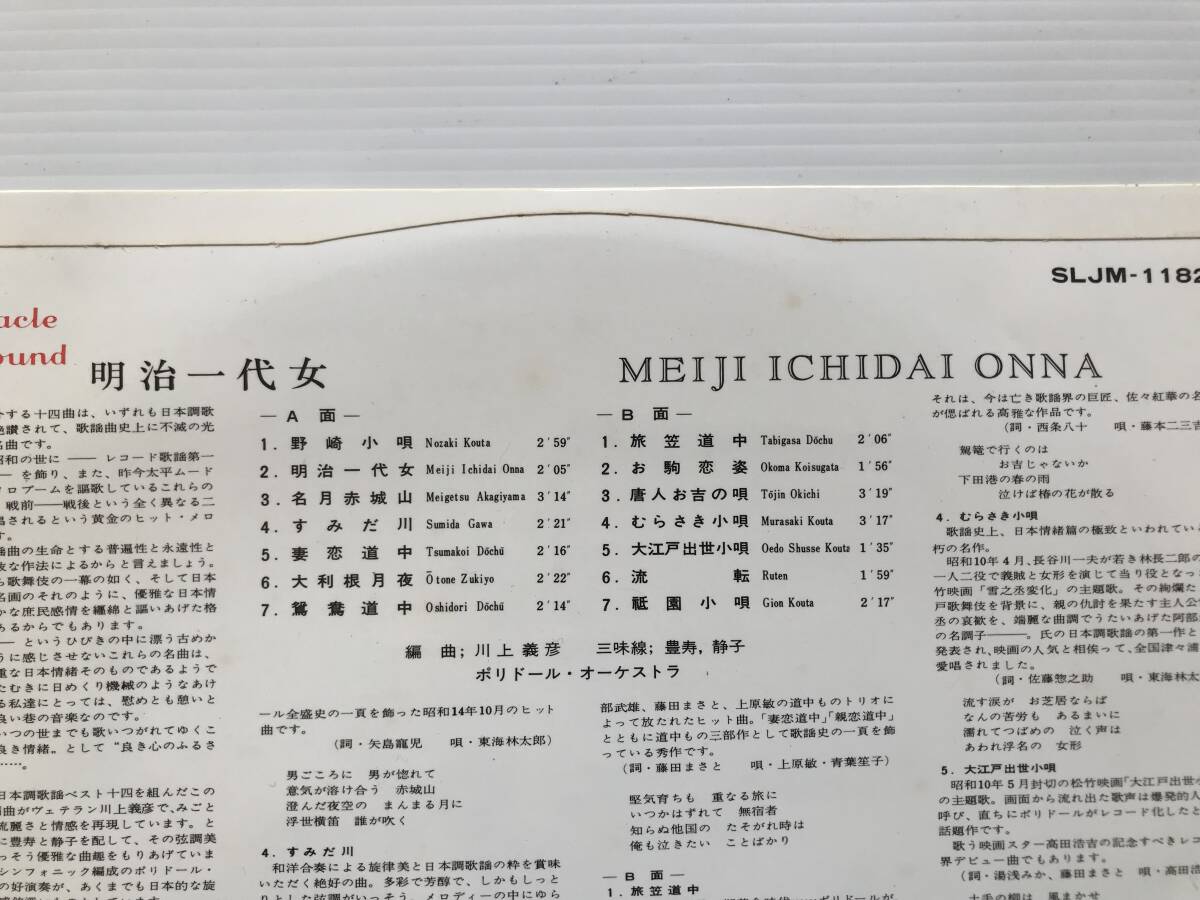 SLJM-1182
acle
ound
明治一代女
MEIJI ICHIDAI ONNA
する十四曲は、いずれも日本調歌
絶讃されて、歌謡曲史上に不滅の光
名曲です。
昭和の世に ―― レコード歌謡第一
―― を飾り、また、昨今太平ムード
ロブームを謳歌しているこれらの
戦前――戦後という全く異なる二
唱されるという黄金のヒット・メロ
す。
謡曲の生命とする普遍性と永遠性と
な作法によるからと言えましょう。
ら歌舞伎の一幕の如く、そして日本
名画のそれのように、優雅な日本情
かな庶民感情を纒綿と謳いあげた格
あるからでもあります。
―― というひびきの中に漂う古めか
うに感じさせないこれらの名曲は、
重な日本情緒そのものであるようで
たむきに日めくり機械のようなあけ
る私達にとっては、慰めとも憩いと
良い巷の音楽なのです。
いつの世までも歌いつがれてゆくこ
良き情緒。として“良き心のふるさ
……。
日本調歌謡ベスト十四を組んだこの
編曲がヴェテラン川上義彦で、みごと
流麗さと情感を再現しています。と
に豊寿と静子を配して、その弦調美
っそう優雅な曲趣をもりあげていま
シンフォニック編成のポリドール・
の好演奏が、あくまでも日本的な旋
― A 面 ―
1. 野崎小唄 Nozaki Kouta 2′59″
2. 明治一代女 Meiji Ichidai Onna 2′05″
3. 名月赤城山 Meigetsu Akagiyama 3′14″
4. すみだ川 Sumida Gawa 2′21″
5. 妻恋道中 Tsumakoi Dōchū 2′16″
6. 大利根月夜 Ōtone Zukiyo 2′22″
7. 鴛鴦道中 Oshidori Dōchū 2′14″
― B 面 ―
1. 旅笠道中 Tabigasa Dōchu 2′06″
2. お駒恋姿 Okoma Koisugata 1′56″
3. 唐人お吉の唄 Tōjin Okichi 3′19″
4. むらさき小唄 Murasaki Kouta 3′17″
5. 大江戸出世小唄 Oedo Shusse Kouta 1′35″
6. 流転 Ruten 1′59″
7. 祗園小唄 Gion Kouta 2′17″
編曲; 川上義彦 三味線; 豊寿, 静子
ポリドール・オーケストラ
ール全盛史の一頁を飾った昭和14年10月のヒット
曲です。
(詞・矢島寵児 唄・東海林太郎)
男ごころに 男が惚れて
意気が溶け合う 赤城山
澄んだ夜空の まんまる月に
浮世横笛 誰が吹く
4. すみだ川
和洋合奏による旋律美と日本調歌謡の粋を賞味
いただく絶好の曲。多彩で芳醇で、しかもしっと
りとした弦調がいっそう、メロディーの中にゆら
部武雄、藤田まさと、上原敏の道中ものトリオに
よって放たれたヒット曲。「妻恋道中」「親恋道中」
とともに道中もの三部作として歌謡史の一頁を飾
っている秀作です。
(詞・藤田まさと 唄・上原敏・青葉笙子)
堅気育ちも 重なる旅に
いつかはずれて 無宿者
知らぬ他国の たそがれ時は
俺も泣きたい ことばかり
― B 面 ―
1. 旅笠道中
それは、今は亡き歌謡界の巨匠、佐々紅華の名
が偲ばれる高雅な作品です。
(詞・西条八十 唄・藤本二三吉
駕篭で行くのは
お吉じゃないか
下田港の春の雨
泣けば椿の花が散る
4. むらさき小唄
歌謡史上、日本情緒篇の極致といわれてい
朽の名作。
昭和10年4月、長谷川一夫が若き林長二郎の
一人二役で義賊と女形を演じて当り役となっ
竹映画「雪之丞変化」の主題歌。その絢爛た
戸歌舞伎を背景に、親の仇討を果たす主人公
丞の哀歓を、端麗な曲調でうたいあげた阿部
の名調子――。氏の日本調歌謡の第一作と
発表され、映画の人気と相俟って、全国津々浦
愛唱されました。
(詞・佐藤惣之助 唄・東海林太
流す涙が お芝居ならば
なんの苦労も あるまいに
濡れてつばめの 泣く声は
あわれ浮名の 女形
5. 大江戸出世小唄
昭和10年5月封切の松竹映画「大江戸出世小
の主題歌。画面から流れ出た歌声は爆発的人
呼び、直ちにポリドールがレコード化したと
話題作です。
歌う映画スター高田浩吉の記念すべきレコ
界デビュー曲でもあります。
(詞・湯浅みか、藤田まさと 唄・高田浩
土手の柳は 風まかせ